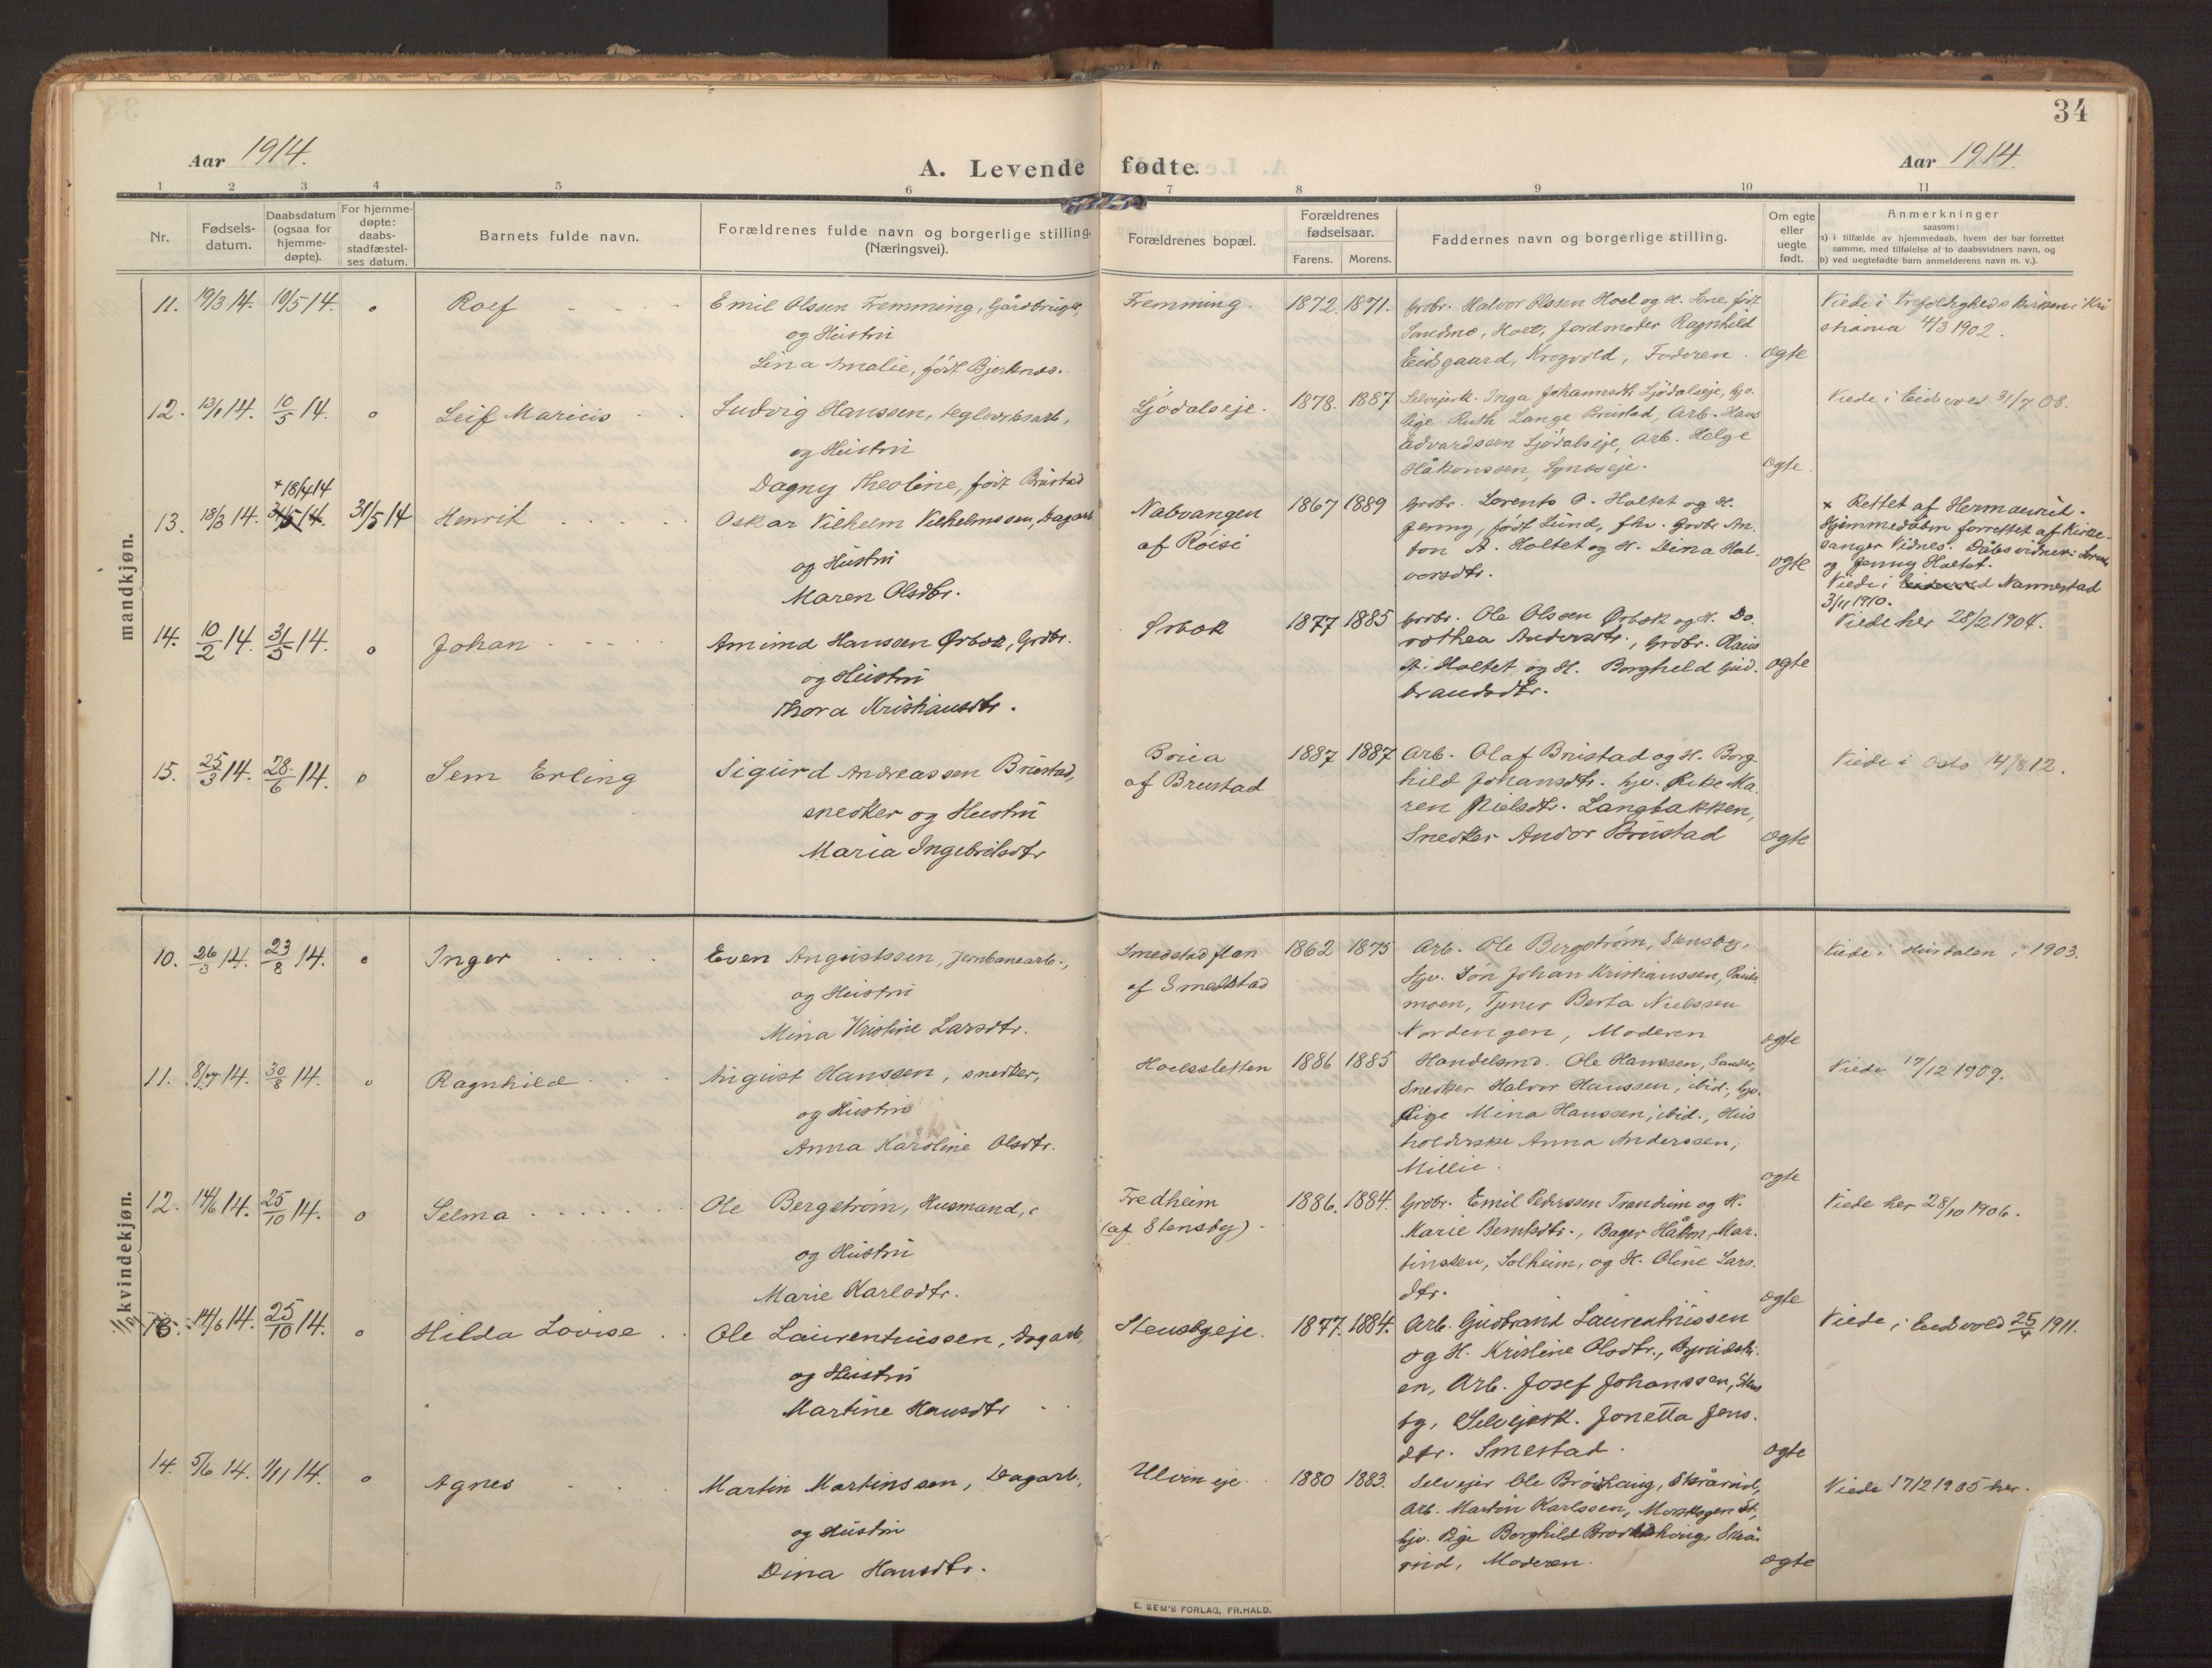 34
Aar 1914.
A. Levende fødte.
Aar 1914.
1 2 3 4 5 6 7 8 9 10 11
Nr.
Fødsels-
datum.
Daabsdatum
(ogsaa for
hjemme-
døpte).
For hjemme-
døpte:
daabs-
stadfæstel-
ses datum.
Barnets fulde navn.
Forældrenes fulde navn og borgerlige stilling.
(Næringsvei).
Forældrenes bopæl.
Forældrenes
fødselsaar.
Farens. Morens.
Faddernes navn og borgerlige stilling.
Om egte
eller
uegte
født.
Anmerkninger
saasom:
a) i tilfælde av hjemmedaab, hvem der har forrettet
samme, med tilføielse af to daabsvidners navn, og
b) ved uegtefødte barn anmelderens navn m. v.).
mandkjøn.
11. 19/3 14. 10/5 14. o Rolf
Emil Olssen Fremming, Gårdbruger,
og Hustru
Lina Amalie, født Bjerknes.
Fremming. 1872. 1871.
Grdbr. Halvor Olssen Hoel og H. Lene, født
Sandmo, Hoel, Jordmoder Ragnhild
Eidsgaard, Krogvold, Faderen.
ægte
Viede i Trefoldighedskirken i Kri
stiania 4/3 1902.
12. 13/1 14. 10/5 14. o Leif Marius
Ludvig Hanssen, teglverksarb.,
og Hustru
Dagny Theoline, født Brustad
Ljødalseje. 1878. 1887
Selvejersk. Inga Johannesdtr. Ljødalseje, hjv.
Pige Ruth Lange Brustad, Arb. Hans
Edvardssen Ljødalseje, Arb. Helge
Håkonssen, Lynæseje.
ægte.
Viede i Eidsvold 31/7 08.
+ 18/4 14
13. 18/3 14. 31/5 14. 31/5 14 Henrik
Oskar Vilhelm Vilhelmssen, Dagarb.
og Hustru
Maren Olsdtr.
Nabvangen
af Røisi
1867 1889
Grdbr. Lorents A. Holtet og H.
Jenny, født Lund, fhv. Grdbr. An.
ton A. Holtet og H. Dina Hal.
vorsdtr.
ægte
+ Rettet af Hermanrud.
Hjemmedåben forrettet af Kirke-
sanger Vidnes. Dåbsvidner: Lorents
og Jenny Holtet.
Viede i Nannestad
3/11 1910.
14. 10/2 14. 31/5 14. o Johan
Amund Hanssen Ørbæk, Grdbr.
og Hustru
Thora Kristiansdtr.
Ørbæk 1877 1885
Grdbr. Ole Olssen Ørbæk og H. Do.
rothea Andersdtr., Grdbr. Olaus
A. Holtet og H. Borghild Gud.
brandsdtr.
ægte
Viede her 28/2 1904.
15. 25/3 14. 28/6 14. o Sem Erling
Sigurd Andreassen Brustad,
snedker og Hustru
Maria Ingebrigtsdtr
af Brustad
1887 1887
Arb. Olaf Brustad og H. Borg-
hild Johansdtr. hjv. Pike Ma.
ren Nielsdtr. Langbakken,
Snedker Andor Brustad
ægte
Viede i Oslo 14/8 12.
kvindekjøn.
10. 26/3 14. 23/8 14. o Inger
Even Augustssen, Jernbanearb.,
og Hustru
Mina Kristine Larsdtr.
Smedstadflan
af Smedstad
1862 1875
Arb. Ole Bergstrøm, Stensby,
hjv. Søn Johan Kristianssen,
moen, Tjener Berta Nielssen
Nordengen, Moderen
ægte
Viede i Hurdalen i 1903.
11. 8/7 14. 30/8 14. o Ragnhild
August Hanssen, snedker,
og Hustru
Anna Karoline Olsdtr.
Hoelssletten 1886 1885
Handelsmd. Ole Hanssen, Sander,
Snedker Halvor Hanssen, ibid., hjv.
Pige Mina Hanssen, ibid., Hus
holderske Anna Anderssen,
Millie.
ægte
Viede 17/12 1909.
12. 14/6 14. 25/10 14. o Selma
Ole Bergstrøm, Husmand,
og Hustru
Marie Karlsdtr.
Fredheim
(af Stensby).
1886. 1884.
Grdbr. Emil Pedersen Trandum og H.
Marie Berntsdtr., Bager Håkon Mar.
tinssen, Solheim, og H. Oline Lars.
dtr.
ægte
Viede her 28/10 1906.
13. 14/6 14. 25/10 14. o Hilda Lovise
Ole Laurentiussen, Dagarb,
og Hustru
Martine Hansdtr
Stensbyeje. 1877. 1884.
Arb. Gudbrand Laurentiussen
og H. Kristine Olsdtr.,
en, Arb. Josef Johanssen, Stens
by, Selvejersk. Jonetta Jens.
dtr. Smestad.
ægte
Viede i Eidsvold 25/4 1911.
14. 5/6 14. 1/11 14. o Agnes
Martin Martinssen, Dagarb.,
og Hustru
Dina Hansdtr.
Ulvin eje. 1880 1883.
Selvejer Ole Brodshaug, Skårrud,
Arb. Martin Karlssen, Morskogen St.,
hjv. Pige Borghild Brodshoug, Skår
rud, Moderen.
ægte
Viede 17/2 1905 her.
E. SEM'S FORLAG, FR.HALD.